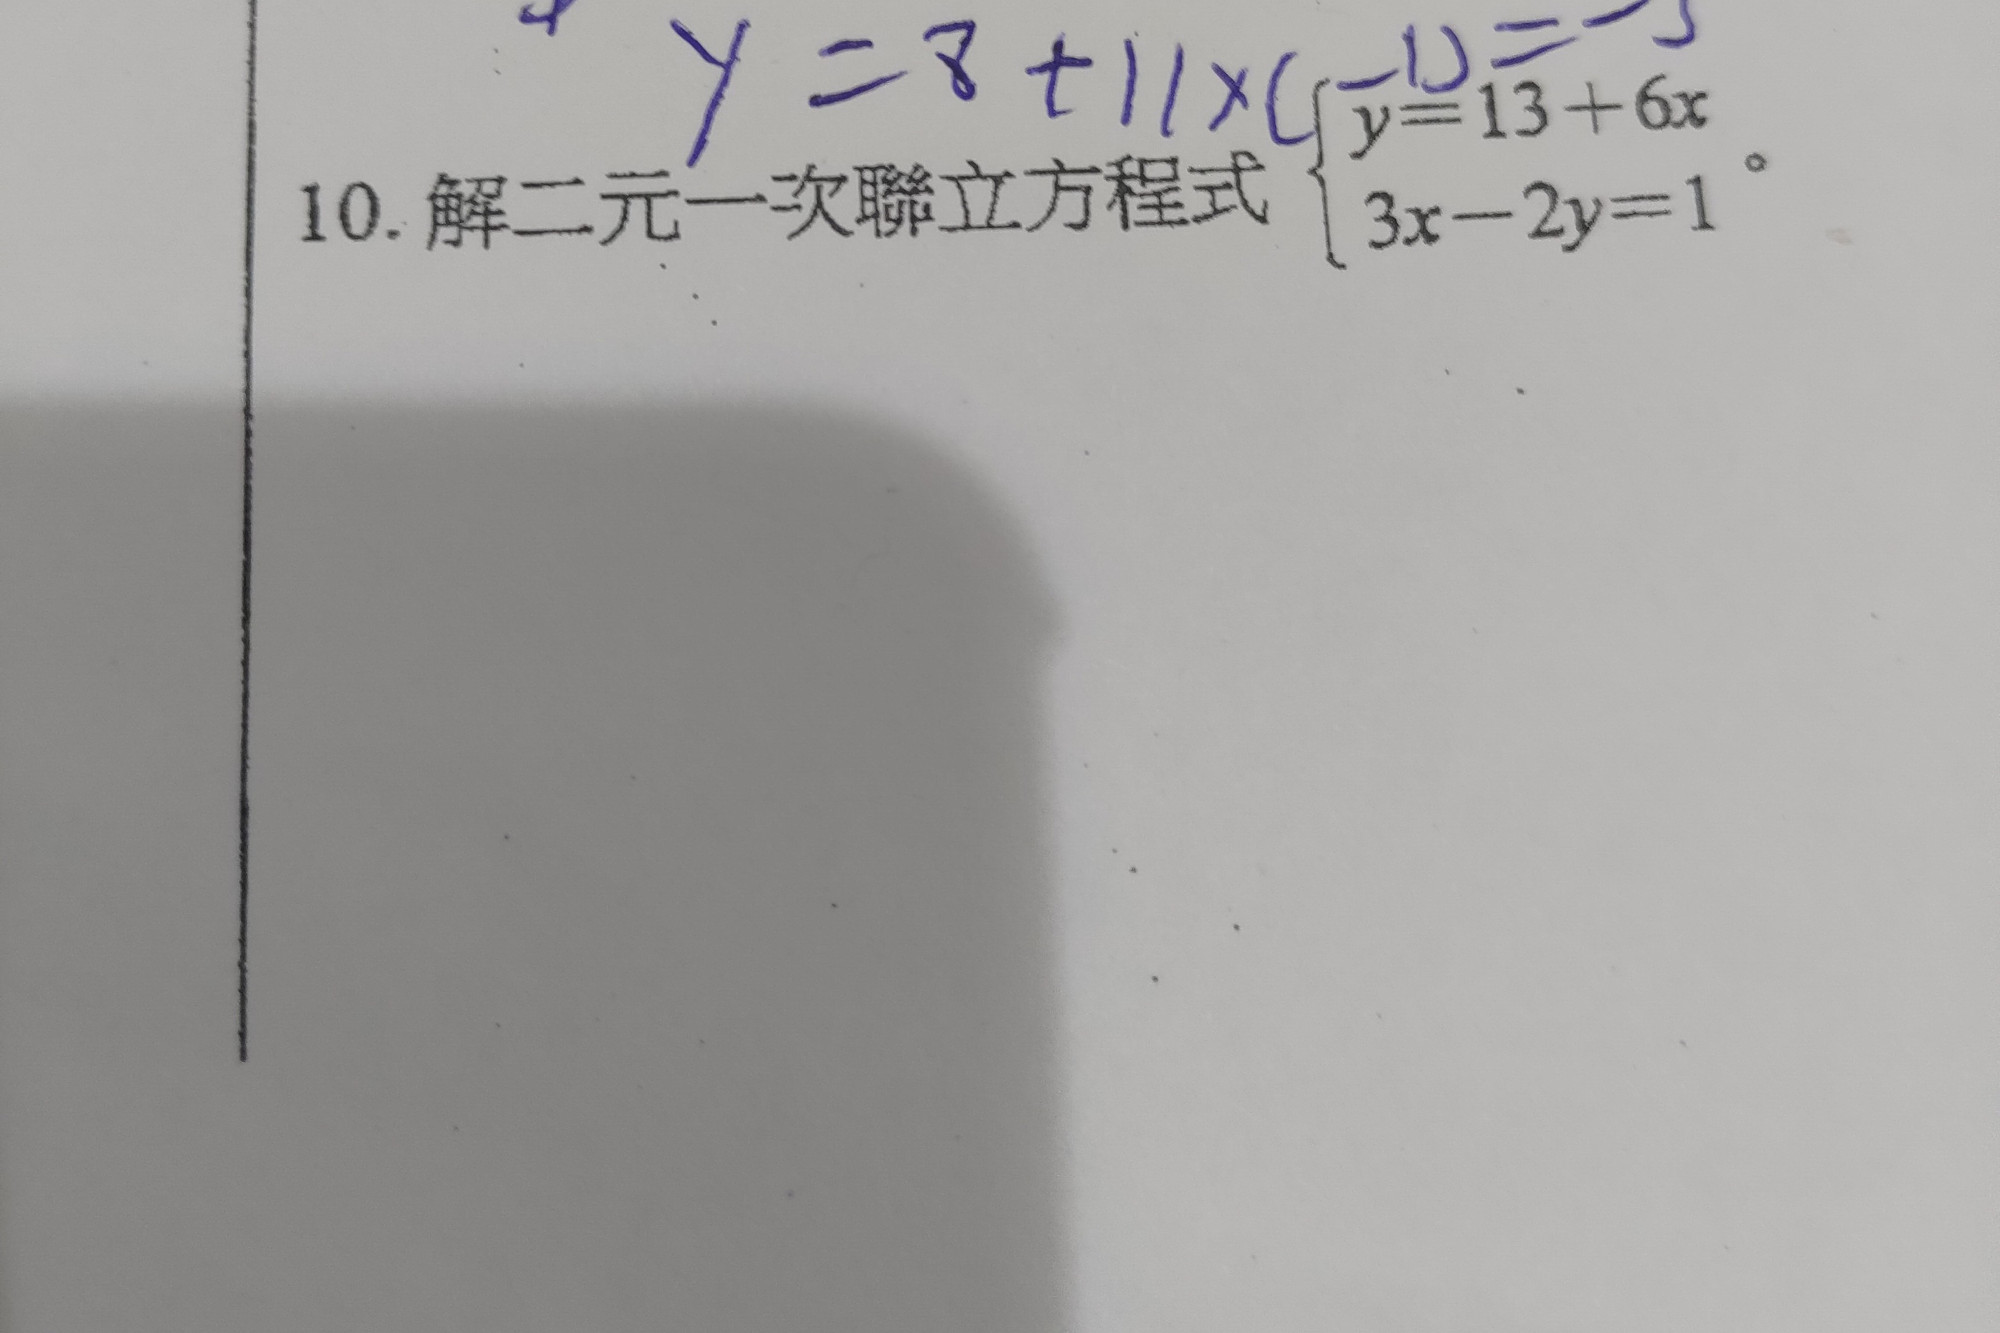 y = 8 + 11 × (-1) = -3
10. 解二元一次聯立方程式 { y=13+6x
3x-2y=1 。